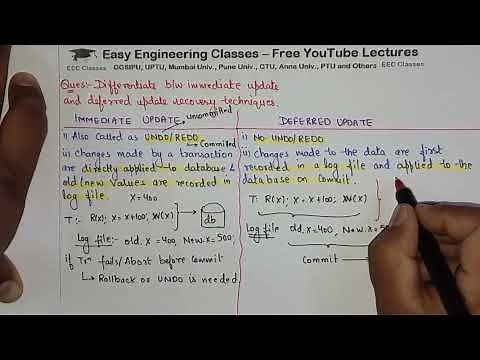 Easy Engineering Classes – Free YouTube Lectures
EEC Classes GGSIPU, UPTU, Mumbai Univ., Pune Univ., GTU, Anna Univ., PTU and Others EEC Classes
Ques:- Differentiate b/w immediate update
and deferred update recovery techniques.
IMMEDIATE UPDATE
uncommitted
i) Also called as UNDO/REDO
Committed
ii) Changes made by a transaction
are directly applied to database &
old/new Values are recorded in
log file.
X=400
T:- R(X); X=X+100; W(X)
db
Log file:- old.X=400, New.X=500;
if Txn fails/Abort before Commit
↳ Rollback or UNDO is needed
DEFERRED UPDATE
i) NO UNDO/REDO
ii) Changes made to the data are first
recorded in a log file and applied to the
database on Commit.
T: R(X); X=X+100; W(X)
Log file old.X=400, New.X=50
Commit